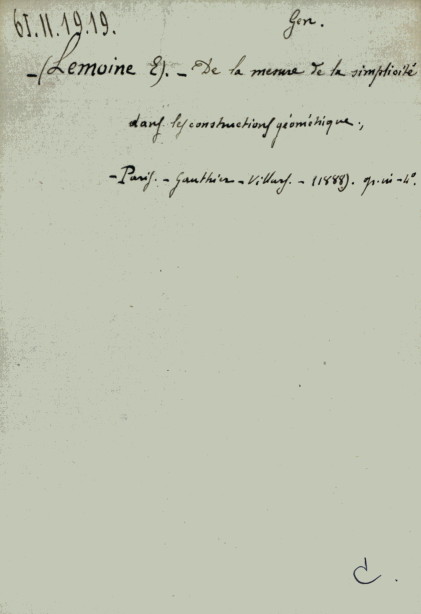 61.II.19.19.
Gen.
-(Lemoine E). - De la mesure de la simplicité
dans les constructions géométrique.,
- Paris. - Gauthier - Villars. - (1888). gr. in - 4°.
C.